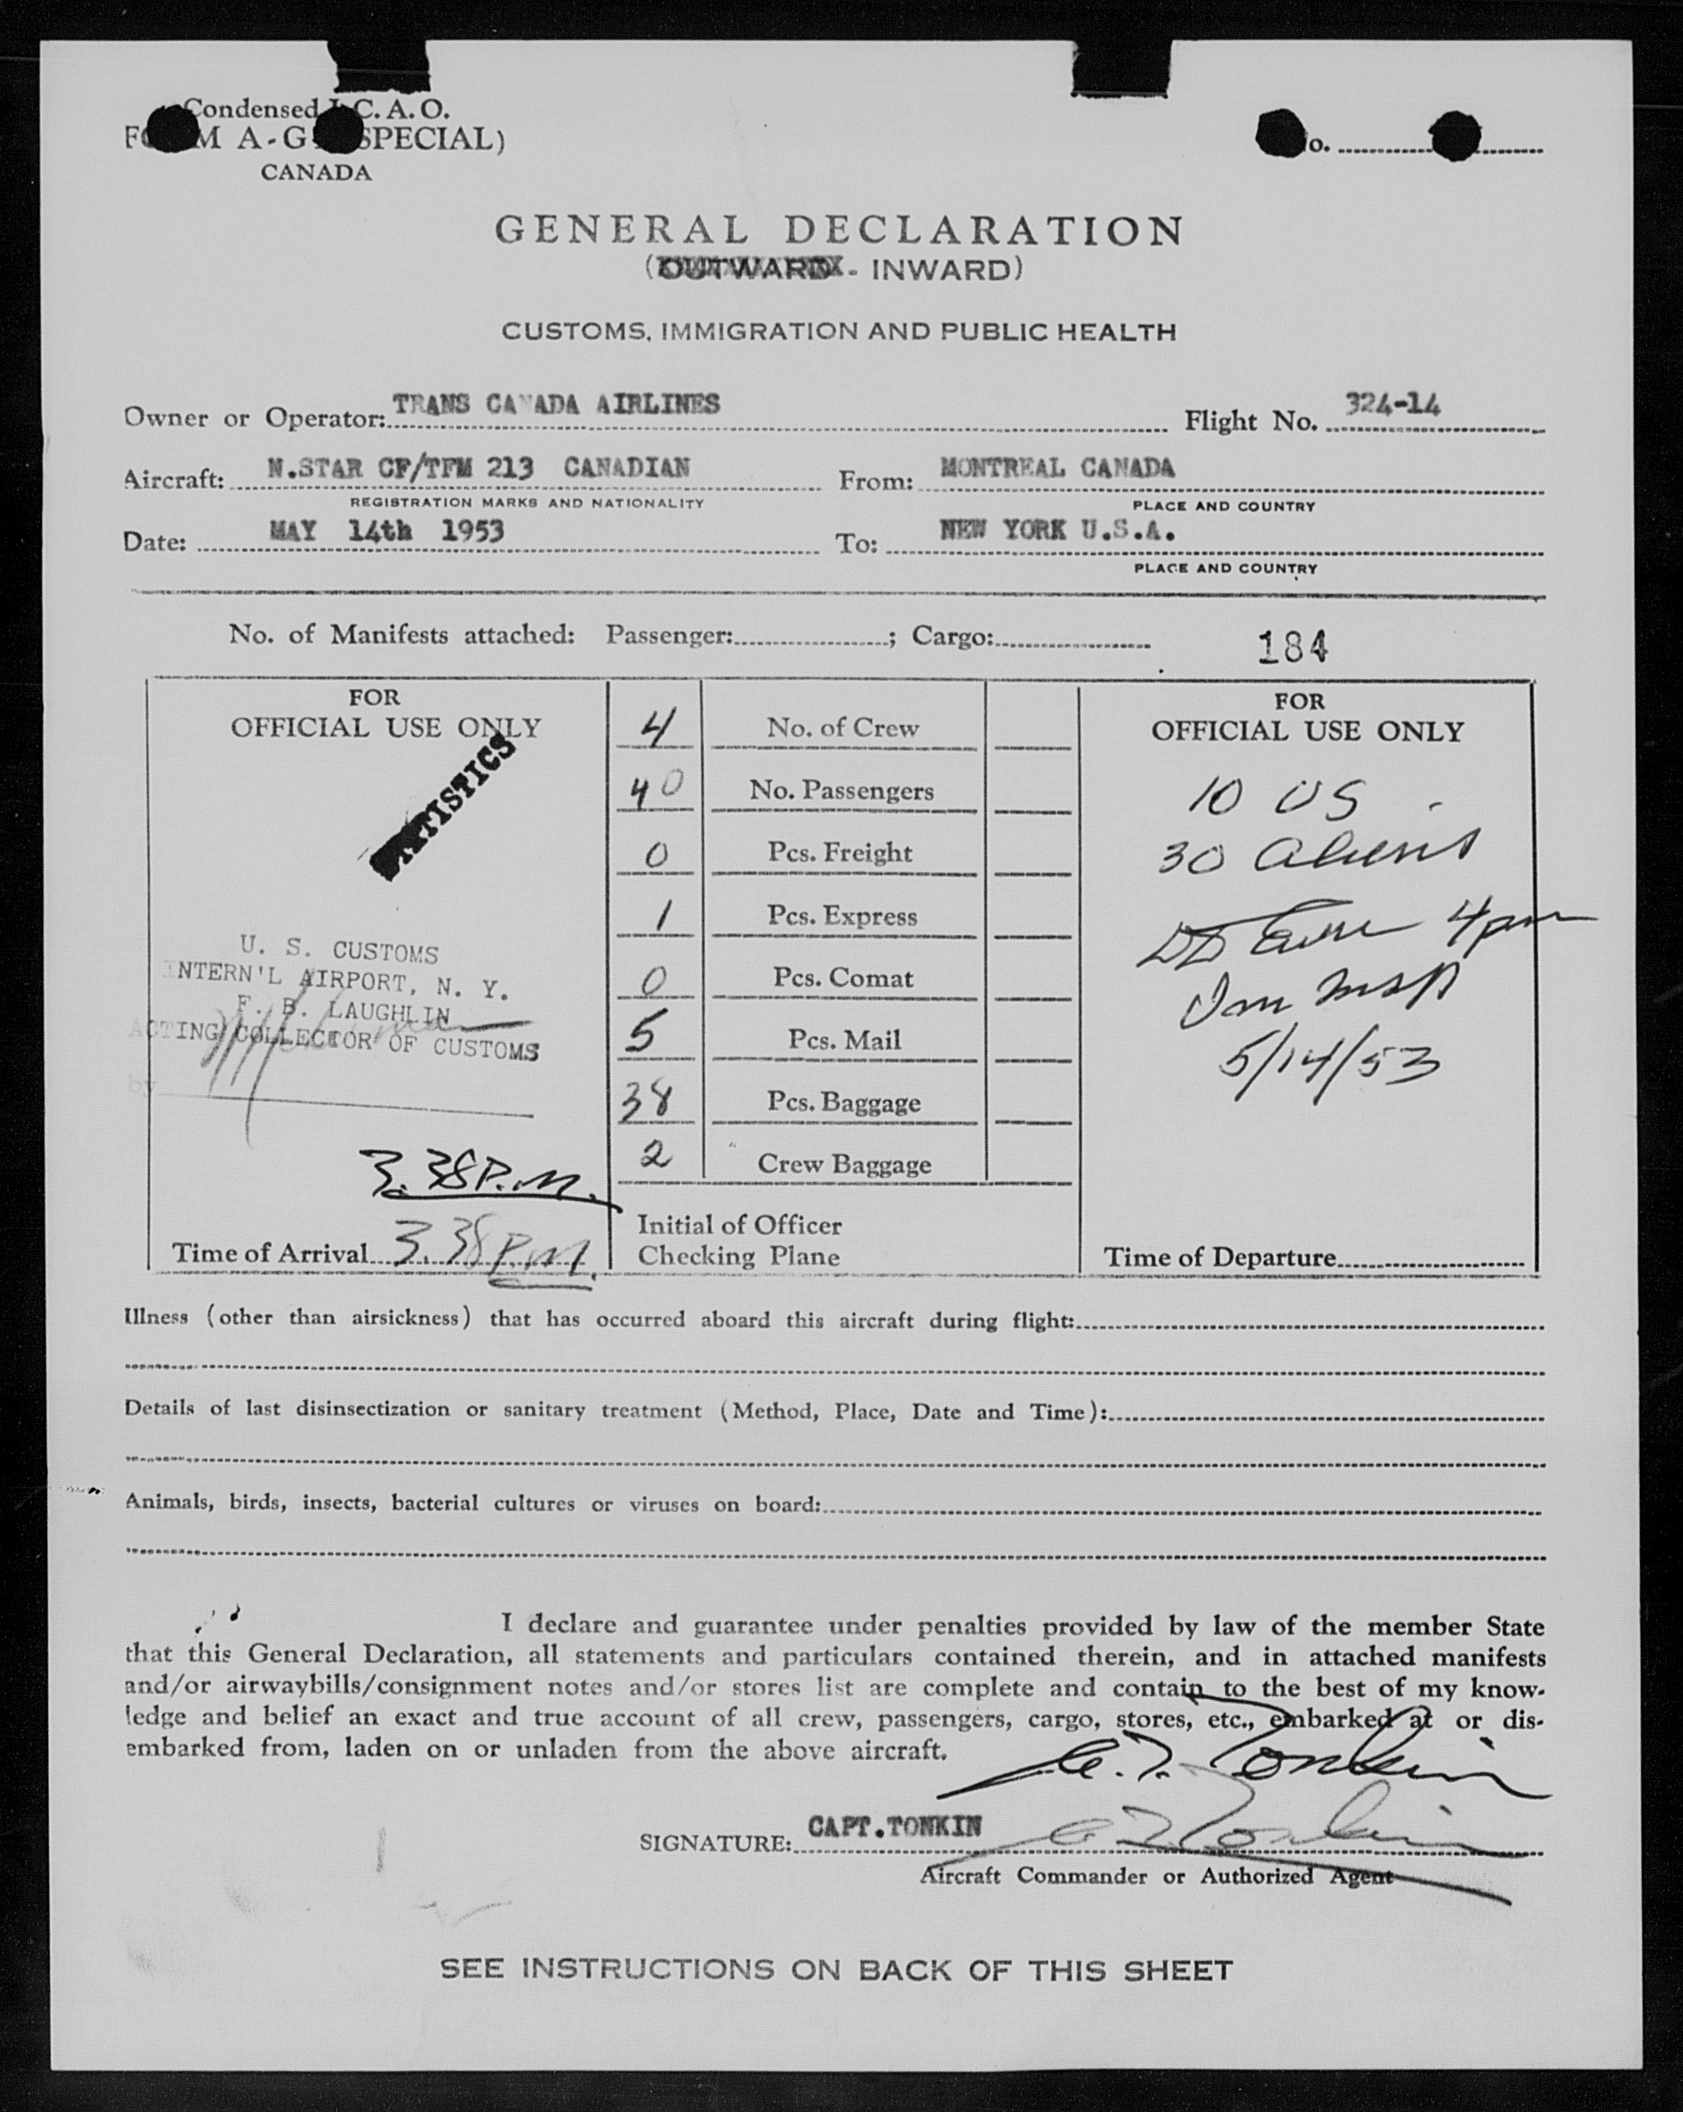 Condensed I.C.A.O.
FORM A-G (SPECIAL)
CANADA
No.
GENERAL DECLARATION
(OUTWARD - INWARD)
CUSTOMS, IMMIGRATION AND PUBLIC HEALTH
Owner or Operator: TRANS CANADA AIRLINES Flight No. 324-14
Aircraft: N.STAR CF/TFM 213 CANADIAN From: MONTREAL CANADA
REGISTRATION MARKS AND NATIONALITY PLACE AND COUNTRY
Date: MAY 14th 1953 To: NEW YORK U.S.A.
PLACE AND COUNTRY
No. of Manifests attached: Passenger: ; Cargo: 184
FOR
OFFICIAL USE ONLY
STATISTICS
U. S. CUSTOMS
INTERN'L AIRPORT, N. Y.
F. B. LAUGHLIN
ACTING COLLECTOR OF CUSTOMS
by
3.38 P.M.
Time of Arrival 3.38 P.M.
4 No. of Crew
40 No. Passengers
0 Pcs. Freight
1 Pcs. Express
0 Pcs. Comat
5 Pcs. Mail
38 Pcs. Baggage
2 Crew Baggage
Initial of Officer
Checking Plane
FOR
OFFICIAL USE ONLY
10 US
30 Aliens
4pm
Imm Insp
5/14/53
Time of Departure
Illness (other than airsickness) that has occurred aboard this aircraft during flight:
Details of last disinsectization or sanitary treatment (Method, Place, Date and Time):
Animals, birds, insects, bacterial cultures or viruses on board:
I declare and guarantee under penalties provided by law of the member State
that this General Declaration, all statements and particulars contained therein, and in attached manifests
and/or airwaybills/consignment notes and/or stores list are complete and contain to the best of my know-
ledge and belief an exact and true account of all crew, passengers, cargo, stores, etc., embarked at or dis-
embarked from, laden on or unladen from the above aircraft.
Tonkin
SIGNATURE: CAPT.TONKIN Tonkin
Aircraft Commander or Authorized Agent
SEE INSTRUCTIONS ON BACK OF THIS SHEET